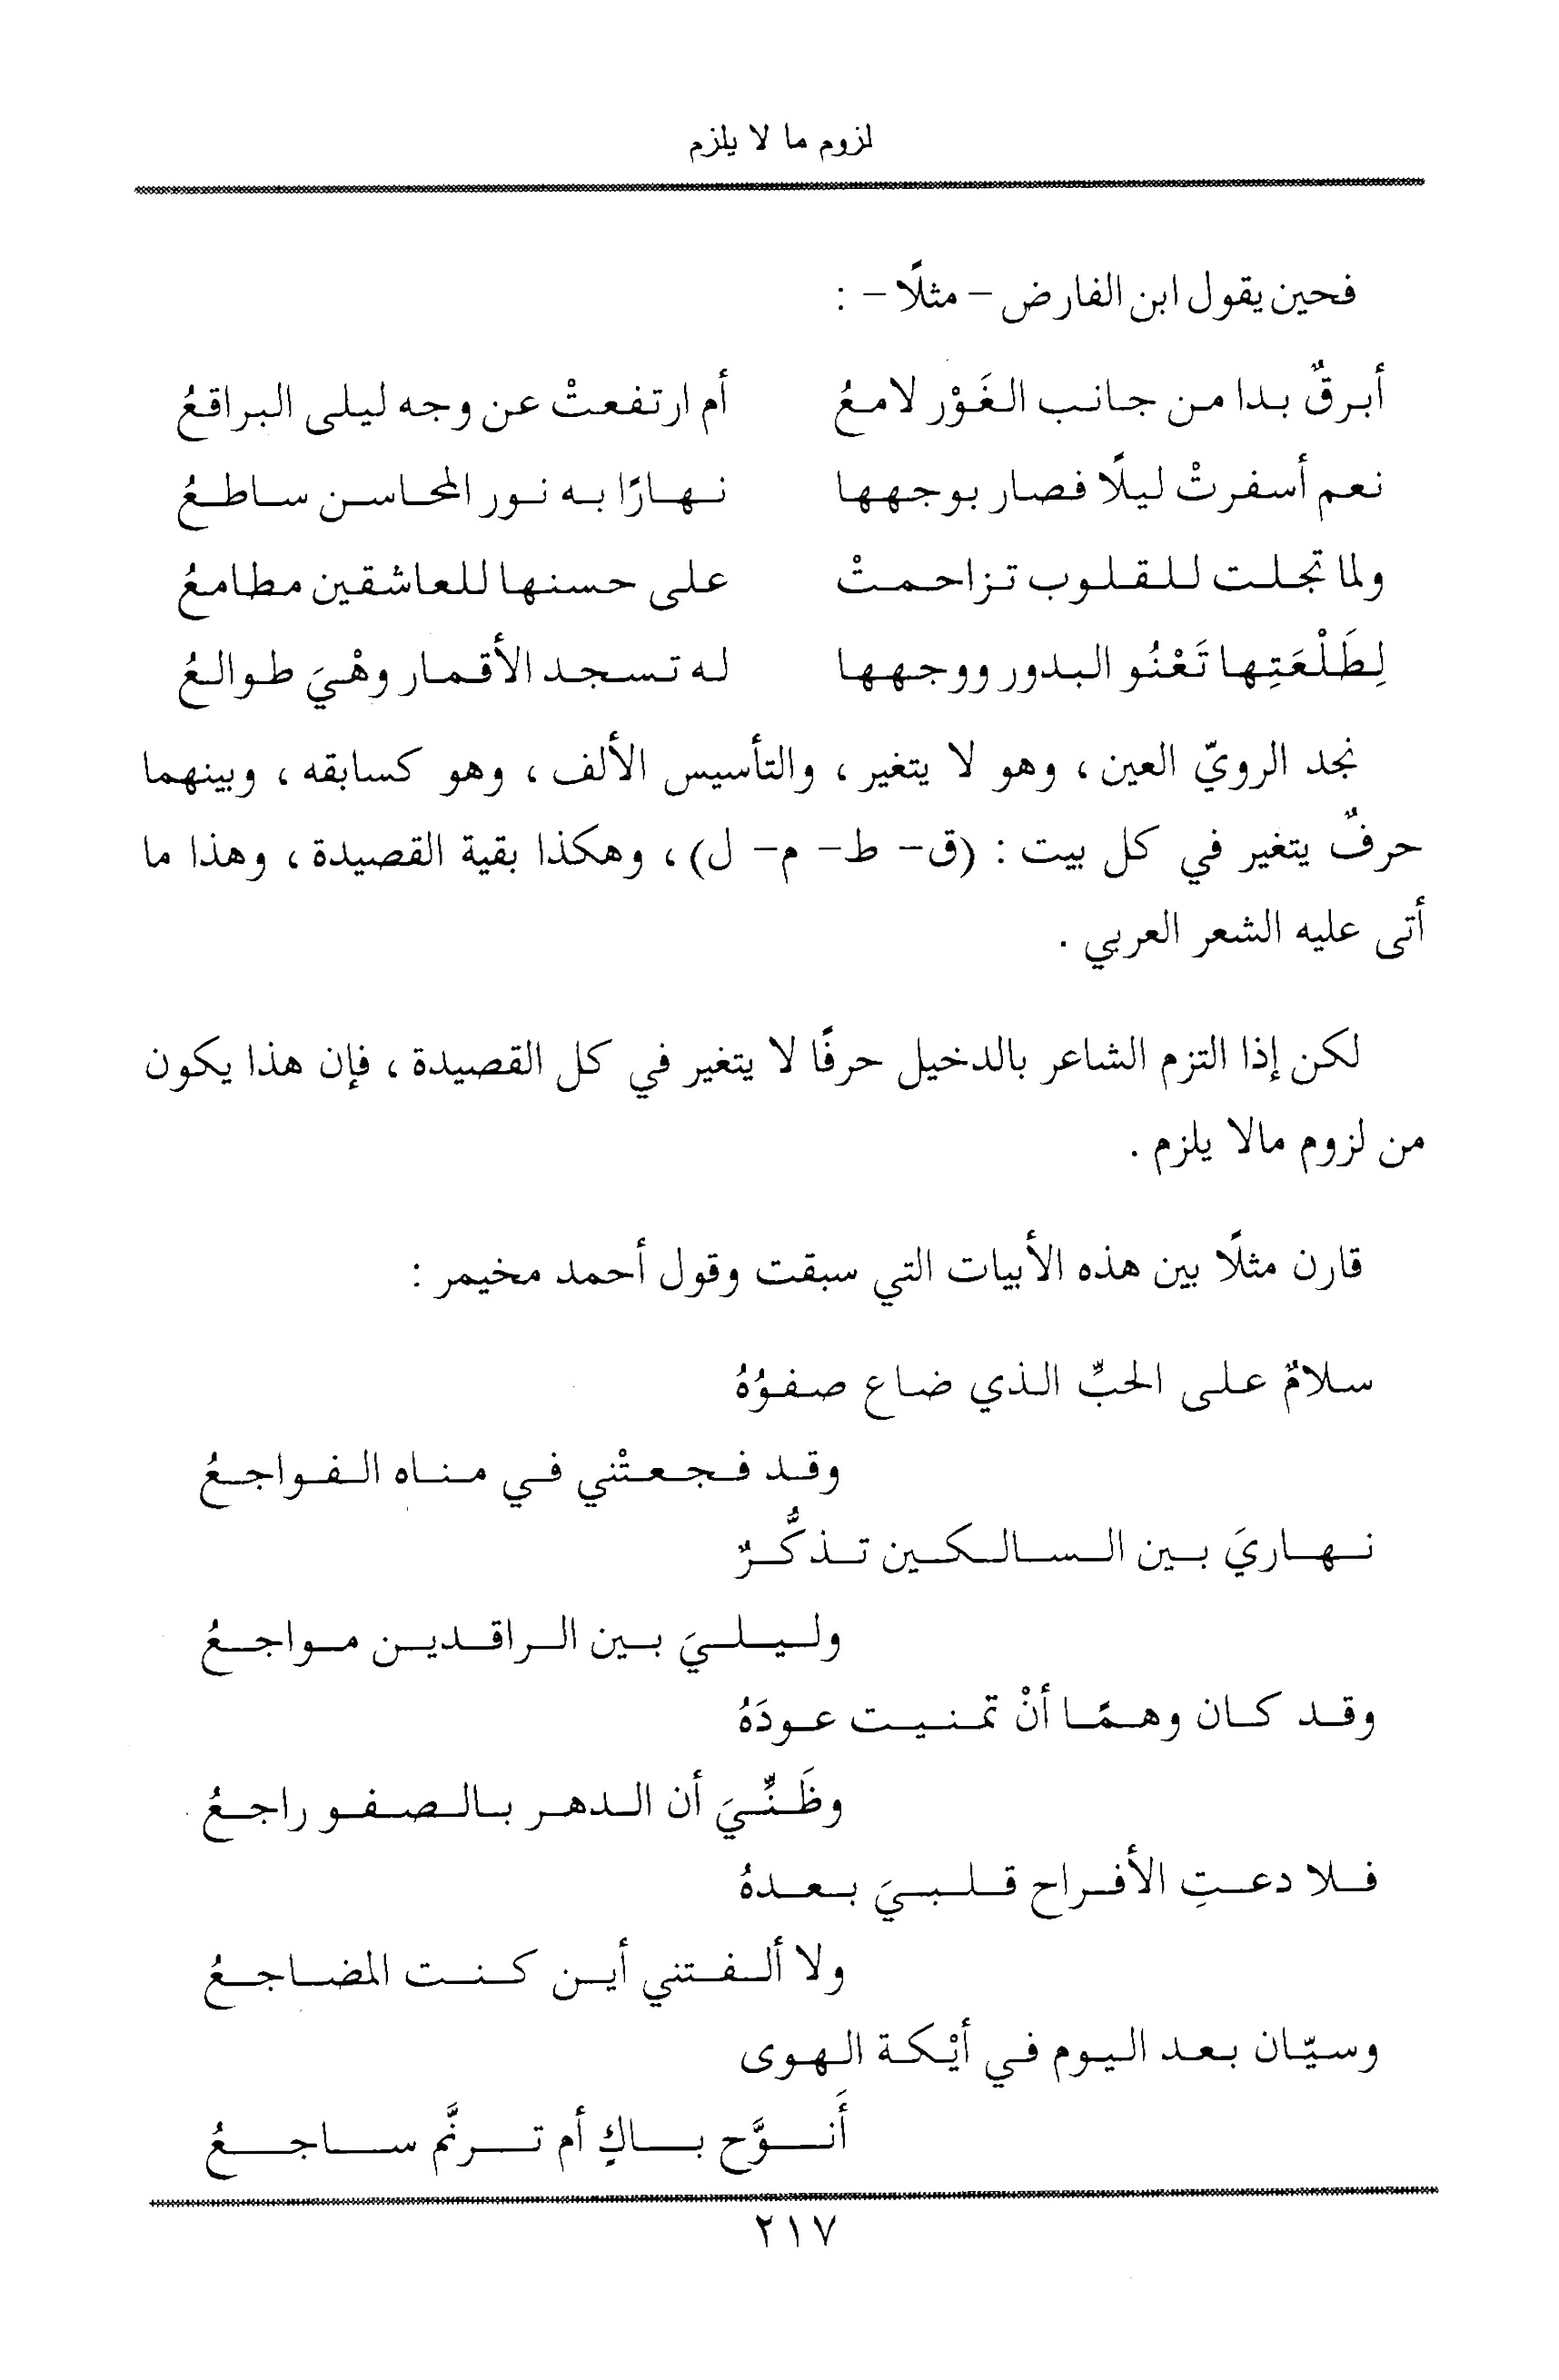 لزوم ما لا يلزم
فحين يقول ابن الفارض – مثلًا – :
أبرقٌ بدا من جانب الغَوْر لامعُ أم ارتفعتْ عن وجه ليلى البراقعُ
نعم أسفرتْ ليلًا فصار بوجهها نهارًا به نور المحاسن ساطعُ
ولما تجلت للقلوب تزاحمتْ على حسنها للعاشقين مطامعُ
لِطَلْعَتِها تَعْنُو البدور ووجهها له تسجد الأقمار وهْيَ طوالعُ
نجد الرويّ العين ، وهو لا يتغير ، والتأسيس الألف ، وهو كسابقه ، وبينهما
حرفٌ يتغير في كل بيت : (ق– ط– م– ل) ، وهكذا بقية القصيدة ، وهذا ما
أتى عليه الشعر العربي .
لكن إذا التزم الشاعر بالدخيل حرفًا لا يتغير في كل القصيدة ، فإن هذا يكون
من لزوم مالا يلزم .
قارن مثلًا بين هذه الأبيات التي سبقت وقول أحمد مخيمر :
سلامٌ على الحبِّ الذي ضاع صفوُهُ
وقد فجعتْني في مناه الفواجعُ
نهاريَ بين السالكين تذكُّرٌ
وليليَ بين الراقدين مواجعُ
وقد كان وهمًا أنْ تمنيت عودَهُ
وظَنِّيَ أن الدهر بالصفو راجعُ
فلا دعتِ الأفراح قلبيَ بعدهُ
ولا ألفتني أين كنت المضاجعُ
وسيّان بعد اليوم في أيْكة الهوى
أَنوَّح باكٍ أم ترنَّم ساجعُ
٢١٧